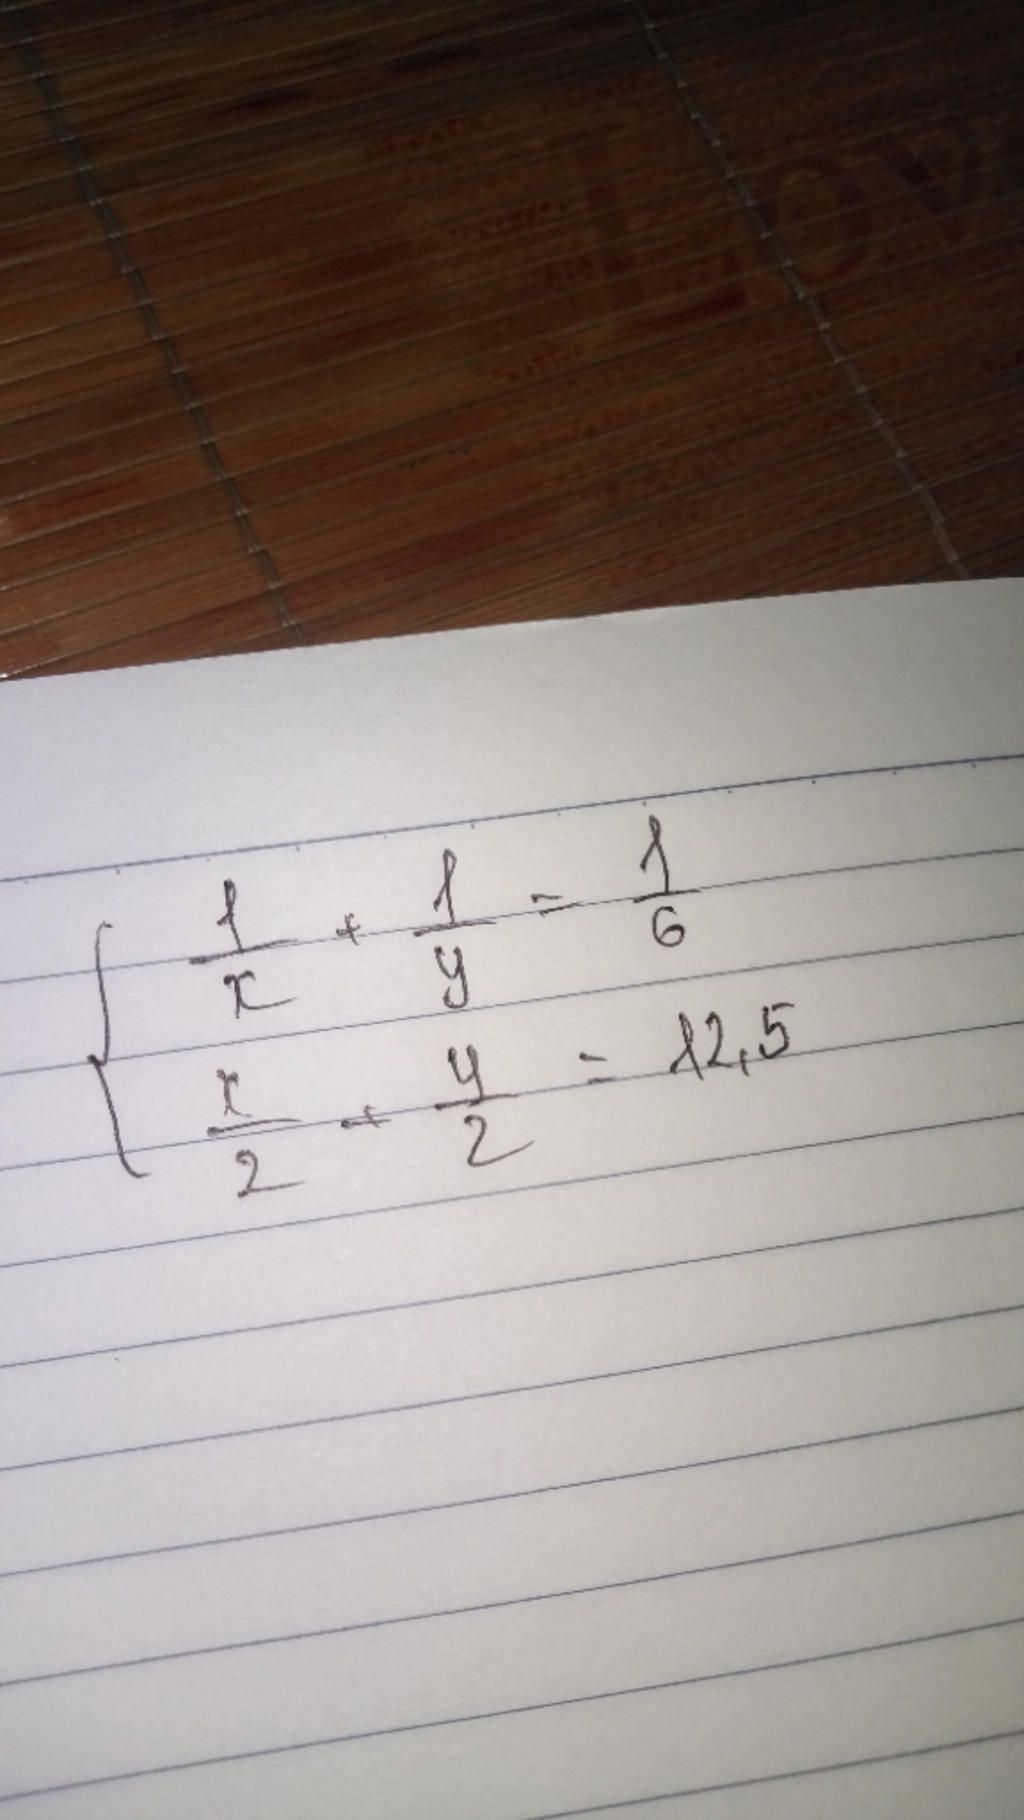 1/x + 1/y = 1/6
x/2 + y/2 = 12,5